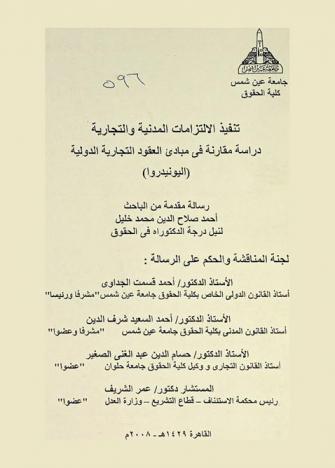 جامعة عين شمس
كلية الحقوق
٥٩٦
تنفيذ الالتزامات المدنية والتجارية
دراسة مقارنة فى مبادئ العقود التجارية الدولية
(اليونيدروا)
رسالة مقدمة من الباحث
أحمد صلاح الدين محمد خليل
لنيل درجة الدكتوراه فى الحقوق
لجنة المناقشة والحكم على الرسالة :
الأستاذ الدكتور/ أحمد قسمت الجداوى
أستاذ القانون الدولى الخاص بكلية الحقوق جامعة عين شمس"مشرفا ورئيسا"
الأستاذ الدكتور/ أحمد السعيد شرف الدين
أستاذ القانون المدنى بكلية الحقوق جامعة عين شمس "مشرفا وعضوا"
الأستاذ الدكتور/ حسام الدين عبد الغنى الصغير
أستاذ القانون التجارى و وكيل كلية الحقوق جامعة حلوان "عضوا"
المستشار دكتور/ عمر الشريف
رئيس محكمة الاستئناف – قطاع التشريع – وزارة العدل "عضوا"
القاهرة ١٤٢٩هـ - ٢٠٠٨م